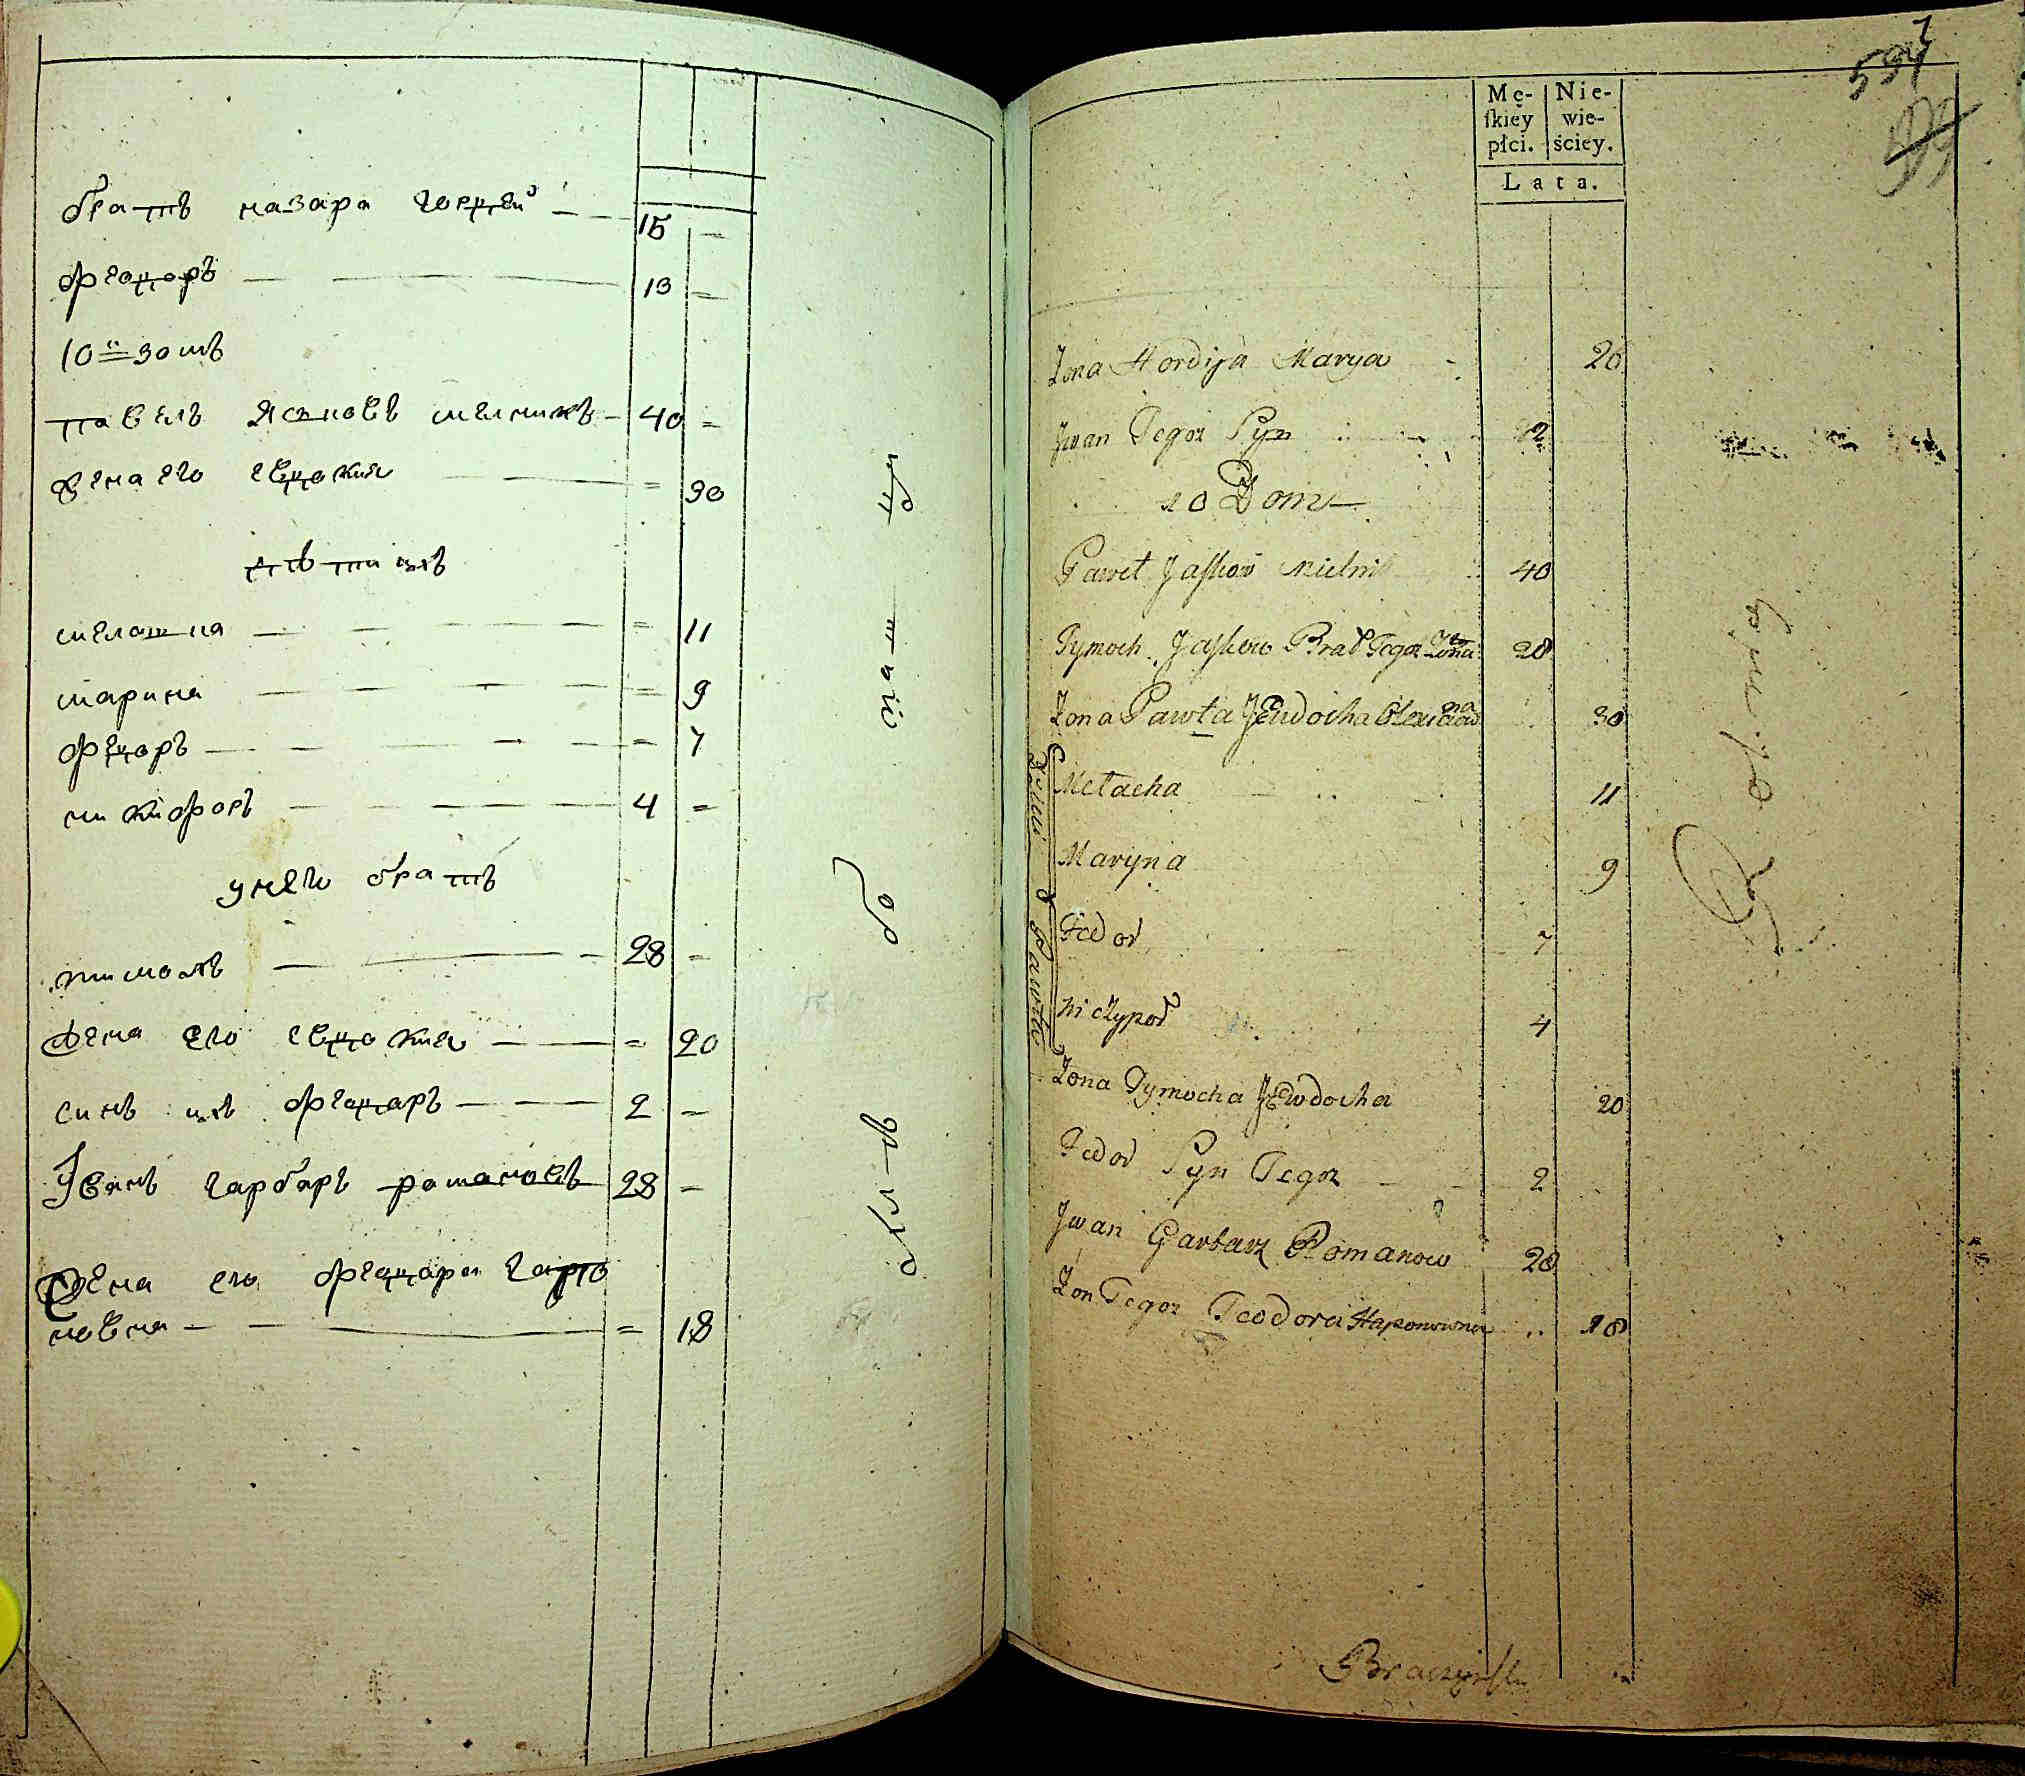 братъ назара гордей 15 =
феодоръ 13 =
10й зомъ
павелъ ясковъ мелникъ 40 =
жена его евдокия = 30
дѣти ихъ
мелашка = 11
марина = 9
федоръ = 7
никифоръ 4 =
у него братъ
тимохъ 28 =
жена его евдокия = 20
синъ ихъ феодаръ 2 =
Иванъ гарбаръ романовъ 28 =
Жена его феодора гапо
новна = 18
594
Mę-
ſkiey
płci.
Nie-
wie-
ściey.
Lata.
Żona Hordija Marya 26
Jwan Tegoż Syn
10 Dom
Paweł Jaſkow Mielnik 40
Tymoch Jaſkow Brat Tegoż 28
Żona Pawła Jewdocha 30
Mełacha 11
Maryna 9
Fedor 7
Niczypor 4
Pawła
Żona Tymocha Jewdocha 20
Fedor Syn Tegoż 2
Jwan Garbarz Romanow 28
Żon Tegoż Teodora Haponowna 18